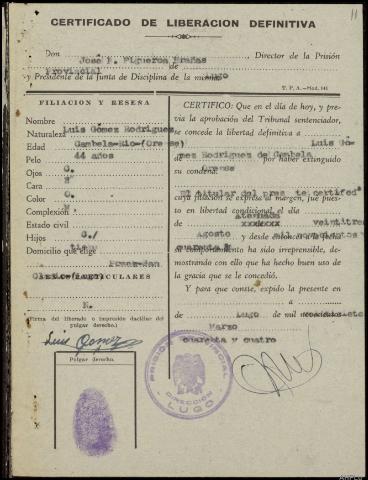 11
CERTIFICADO DE LIBERACION DEFINITIVA
Don José F. Figueroa Brañas, Director de la Prisión
Provincial de
y Presidente de la Junta de Disciplina de la misma Lugo
T. P. A.—Mod. 141
FILIACION Y RESEÑA
Nombre
Luis Gómez Rodríguez
Naturaleza
Edad
44 años
Pelo
Ojos G.
Cara
Color G.
Complexión N
Estado civil
Hijos G./
Domicilio que elige tiene
PARTICULARES
N.
(Firma del liberado o impresión dactilar del
pulgar derecho).
Luis Gomez
Pulgar derecho.
CERTIFICO: Que en el día de hoy, y pre-
via la aprobación del Tribunal sentenciador,
se concede la libertad definitiva a
Luis Gó-
de mez Rodríguez de
por haber extinguido
su condena.
El titular del
cuya filiación se expresa al margen, fué pues-
to en libertad condicional, el día
xxxxxxx veintitres
Agosto
y desde entonces a la fecha
cuarenta
su comportamiento ha sido irreprensible, de-
mostrando con ello que ha hecho buen uso
de la gracia que se le concedió.
Y para que conste, expido la presente en
a
de Lugo de mil
Marzo
cuarenta y cuatro
PRISION PROVINCIAL
DIRECCION
LUGO